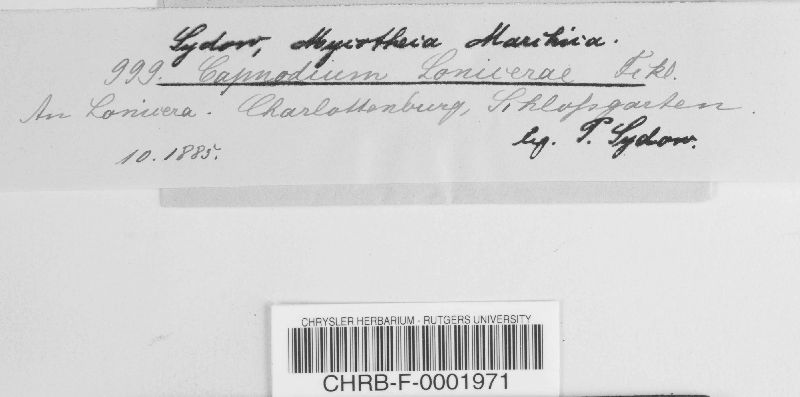 Sydow, Mycotheca Marchica.
999. Capnodium Lonicerae Fckl.
An Lonicera. Charlottenburg, Schloßgarten.
10. 1885.
leg. P. Sydow.
CHRYSLER HERBARIUM - RUTGERS UNIVERSITY
CHRB-F-0001971